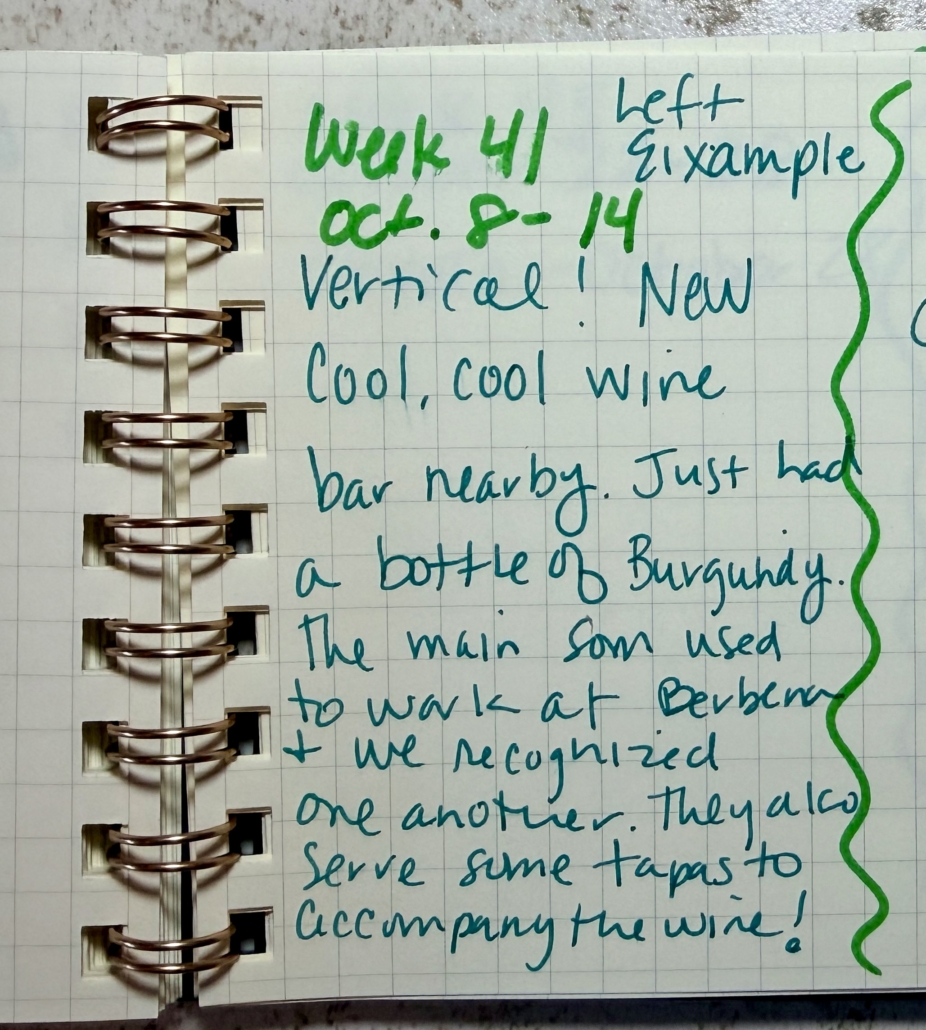 Week 41
Oct. 8-14
Left
Eixample
Vertical! New
Cool, cool wine
bar nearby. Just had
a bottle of Burgundy.
The main som used
to work at Berbena
+ we recognized
one another. They also
serve some tapas to
accompany the wine!